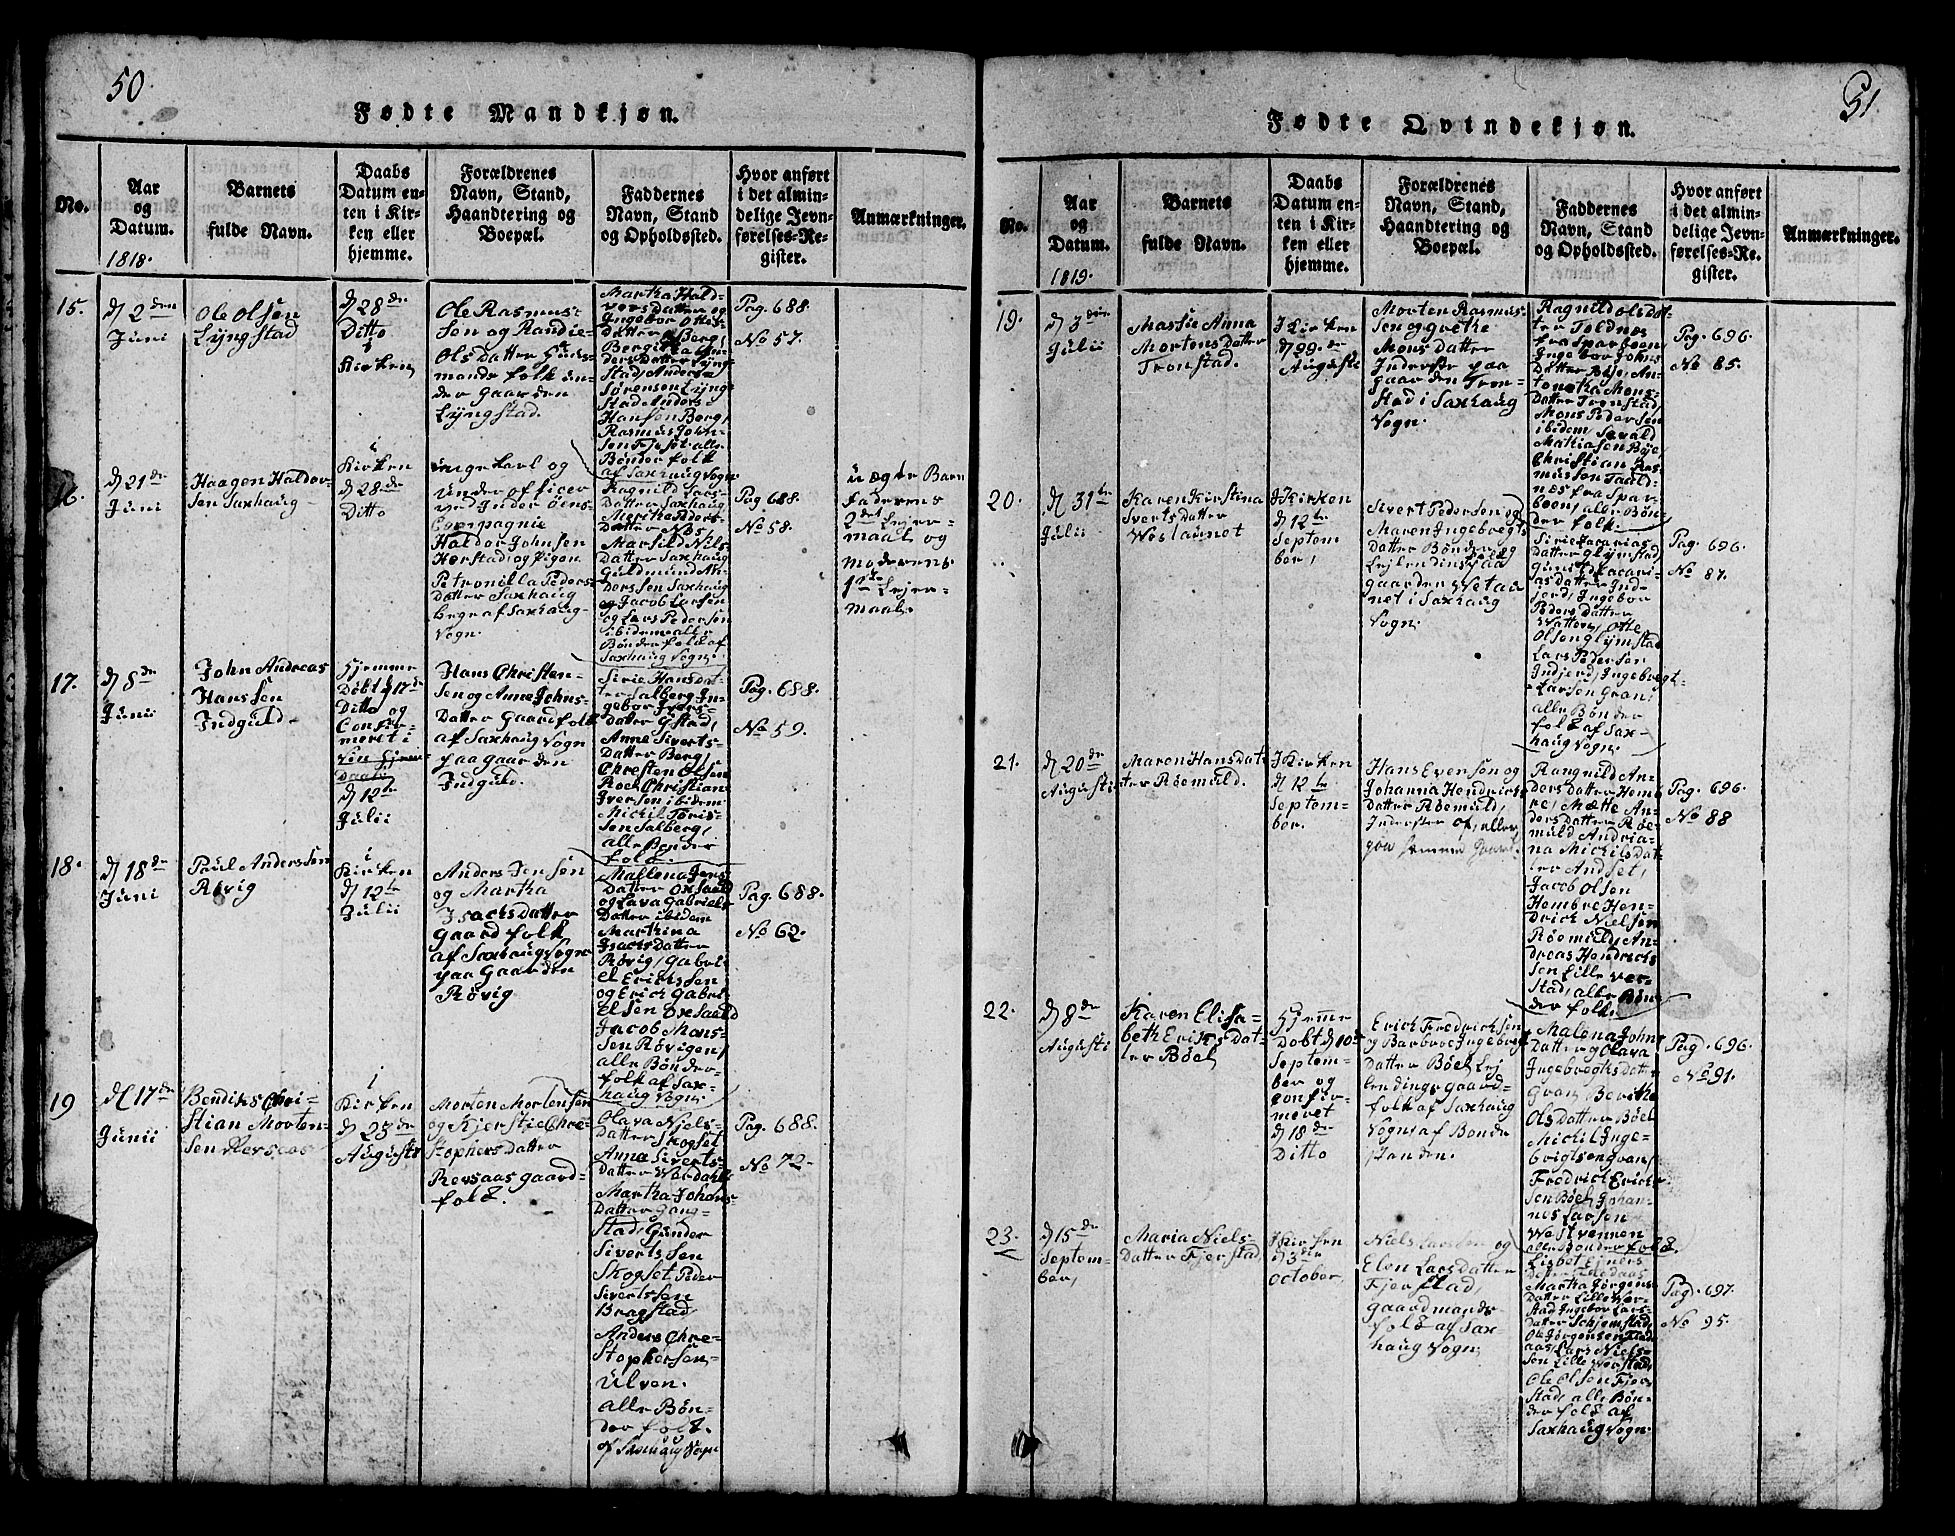 50.
Fødte Mandkjøn.
No.
Aar
og
Datum.
1818.
Barnets
fulde Navn.
Daabs
Datum en-
ten i Kir-
ken eller
hjemme.
Forældrenes
Navn, Stand,
Haandtering og
Boepæl.
Faddernes
Navn, Stand
og Opholdssted.
Hvor anført
i det almin-
delige Jevn-
førelses-Re-
gister.
Anmærkninger.
15.
d 2den
Juni
Ole Olsen
Lyngstad
d 28de
Ditto
i
Kirken
Ole Rasmus-
sen og Randie
Olsdatter Huus-
mands folk un-
der Gaarden
Lyngstad.
Martha Hald-
vorsdatter og
Ingebor Ottis-
datter Berg,
Bergitta An-
dersdatter Lyng-
stad, Anders
Sørensen Lyng-
stad Anders
Hansen Berg,
Rasmus John-
sen Fjeset alle
Bønder folk
af Saxhaug Sogn
Pag. 688.
No 57.
16.
d 21de
Juni
Haagen Haldor-
sen Saxhaug
i
Kirken
d 28de
Ditto
ungekarl og
Underofficer
ved Inderøens
Compagnie
Haldor Johnsen
Herstad, og Pigen
Petronilla Peders-
datter Saxhaug
begge af Saxhaug
Sogn.
Ragnild Lars-
datter Saxhaug
Marith Peders-
datter Næs
Marsild Nils-
datter Saxhaug
Guldmund An-
derssen Saxhaug
og Jacob Larsen
og Lars Pedersen
ibidem alle
Bønder folk af
Saxhaug Sogn.
Pag 688.
No 58.
uægte Barn
Faderens
2det Lejer-
maal og
Moderens
1ste Lejer-
maal.
17.
d 8de
Junii
John Andreas
Hanssen
Indguld
Hjemme
Døbt d 17de
Ditto og
Confir-
meret i
d 12te
Julii
Hans Christen-
sen og Anne Johns-
datter Gaardfolk
af Saxhaug Sogn
paa gaarden
Indguld.
Sirie Hansdat-
ter Salberg In-
gebor Ivers-
datter Gstad,
Anne Siverts-
datter Berg,
Christen Olsen
Roel Christian
Iversen ibidem
Michil Toris-
sen Salberg,
alle Bønder
folk.
Pag. 688.
No 59.
18.
d 18de
Juni
Poul Anderssen
Røvig
i
Kirken
d 12te
Julii
Anders Jensen
og Martha
Isachsdatter
Gaard folk
af Saxhaug Sogn
paa Gaarden
Røvig
Mallena Jens-
datter Oxsaald
og Lava Gabriels-
datter ibidem
Marthina
Isachsdatter
Røvig, Gabri-
el Erichssen
og Erich Gabri-
elsen Oxsaald
Jacob Mons-
sen Røvigen,
alle Bønder-
folk af Sax-
haug Sogn.
Pag. 688.
No 62.
19
d 17de
Junii
Bendiks Chri-
stian Morten-
sen Rersaas
i
Kirken
d 23de
Augusti
Morten Mortensen
og Kjerstie Chre-
stophersdatter
Rersaas gaard-
folk.
Olava Niels-
datter Skogset
Anna Siverts-
datter Werdahl
Martha Johans-
datter Gang-
stad, Gunder
Sivertssen
Skogset Peder
Sivertssen
Bragstad
Anders Chre-
stophersen
Ulven.
alle Bøn-
der folk.
af Saxhaug Sogn
Pag. 688.
No 72.
51.
Fødte Qvindekjøn.
No.
Aar
og
Datum.
1819.
Barnets
fulde Navn.
Daabs
Datum en-
ten i Kir-
ken eller
hjemme.
Forældrenes
Navn, Stand,
Haandtering og
Boepæl.
Faddernes
Navn, Stand
og Opholdssted.
Hvor anført
i det almin-
delige Jevn-
førelses-Re-
gister.
Anmærkninger.
19.
d 3die
Julii
Massie Anna
Mortensdatter
Tronstad.
I Kirken
d 29de
Augusti
Morten Rasmus-
sen og Grethe
Monsdatter
Inderster paa
gaarden Tron-
stad i Saxhaug
Sogn.
Ragnild Olsdat-
ter Toldnes
fra Sparboen
Ingebor Johns-
datter Bøje, An-
tonetha Mons-
datter Tronstad
Mons Pedersen
ibidem, Sevald
Mathiasen Bøje
Christian Ras-
mussen Taald-
nes fra Spar-
boen, alle Bøn-
der folk.
Pag. 696.
No 85.
20.
d 31te
Julii
Karen Kirstina
Sivertsdatter
Woslaunet
I Kirken
d 12te
Septem-
ber,
Sivert Pedersen og
Maren Ingebregts-
datter Bønder og
Lejlendinsfolk paa
gaarden Wetau
net i Saxhaug
Sogn.
Sirie Zacarias-
datter Glymstad
Gunild Zacari-
asdatter Ind-
jerd, Ingebor
Pedersdatter
Watten, Otte
Olsen Glymstad
Lars Pedersen
Indjerd, Ingebregt
Larsen Gran,
alle Bønder
folk af Sax-
haug Sogn.
Pag. 696.
No 87.
21.
d 20de
Augusti
Maren Hansdat-
ter Røemuld.
I Kirken
d 12te
Septem-
ber.
Hans Eversen og
Johanna Hendrichs
datter Røemuld,
Inderster
paa samme Gaard.
Rangnild An-
dersdatter Hemb
re, Mætte An-
dersdatter Røe-
muld Andria-
na Michilsdat-
ter Andset,
Jacob Olsen
Hembre Hen-
drich Nielsen
Røemuld, An-
dreas Hendrichs
sen Lille Ver-
stad, alle Bøn-
der folk.
Pag. 696.
No 88
22.
d 8de
Augusti
Karen Elisa-
beth Eriksdat-
ter Bøel
Hjemme
Døbt d 10de
Septem-
ber og
Confir-
meret
d 18de
Ditto
Erich Fredrichsen
og Barbroe Ingebregt
datter Bøel Lej
lendinge gaard-
folk af Saxhaug
Sogn af Bonde
standen.
Malena Johns
datter og Olava
Ingebregtsdatter
Gran, Berithe
Olsdatter Bøel
Michil Inge-
brigtsen Gran,
Fredrich Erich-
sen Bøel Johan-
nes Larsen
Westvennen
alle Bønder folk.
Pag. 696.
No 91.
23.
d 15de
Septem-
ber,
Maria Niels-
datter Fjerstad
I Kirken
d 3die
October,
Niels Larssen og
Elen Larsdatter
Fjerstad,
gaardmands-
folk af Sax-
haug Sogn,
Lisbet Ejners
Martha Jørgens-
datter Lille Wer-
stad Ingebor Lars-
datter Schjemstad,
Ole Jørgensen
aas, Lars Niels-
sen Lille Werstad,
Ole Olsen Fjer-
stad, alle Bøn-
der folk af
Saxhaug Sogn.
Pag. 697.
No 95.